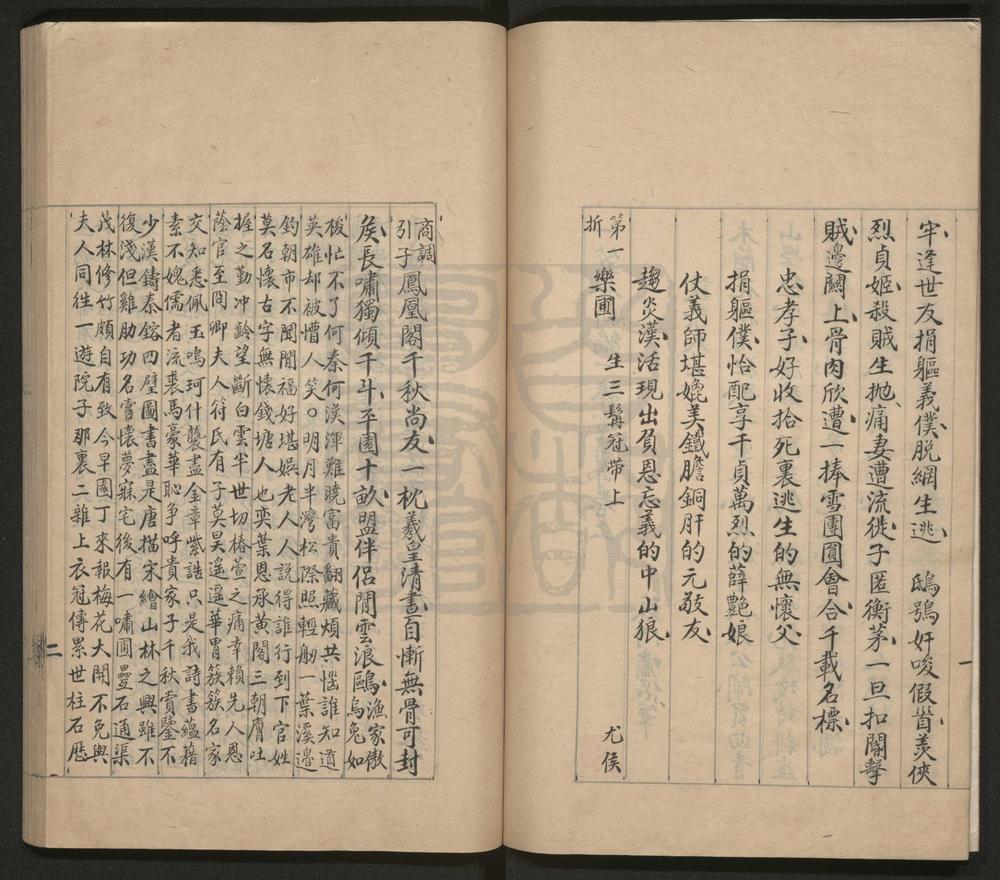 牢逢世友捐軀義僕脱網生逃 鴟鴞奸唆假首羙俠
烈貞姬殺賊生抛痛妻遭流徙子匿衡茅一旦扣閽擊
賊邊闕上骨肉欣遭一捧雪團圓會合千載名標
忠孝子好收拾死裏逃生的無懷父
捐軀僕怡配享千貞萬烈的薛艷娘
仗義師堪媲美鐵膽銅肝的元敬友
趨炎漢活現出負恩忘義的中山狼
第一折 樂圃 生三髯冠帶上 尤侯
一
商調引子鳳凰閣千秋尚友一枕羲皇清書自慚無骨可封
矦長嘯獨傾千斗平園十畝盟伴侶閒雲浪鷗漁家傲烏兔如
梭忙不了何秦何漢渾難曉富貴翻藏煩共惱誰知道
英雄却被懵人笑○明月半灣松際照輕舠一葉溪邊
釣朝市不聞閒福好堪娛老人人説得誰行到下官姓
莫名懷古字無懷錢塘人也奕葉恩承黄閣三朝膺吐
握之勤冲齡望斷白雲半世切椿萱之痛幸賴先人恩
蔭官至閫卿夫人符氏有子莫昊遥遥華胄簇簇名家
交知悉佩玉鳴珂什襲盡金章紫誥只是我詩書藴藉
素不媿儒者流裘馬豪華恥争呼貴家子千秋賞鑒不
少漢鑄秦鎔四壁圖書盡是唐描宋繪山林之興雖不
復淺但雞肋功名嘗懷夢寐宅後有一嘯圃疊石通渠
茂林修竹頗自有致今早園丁來報梅花大開不免與
夫人同徃一遊院子那裏二雜上衣冠傳累世柱石歴
二